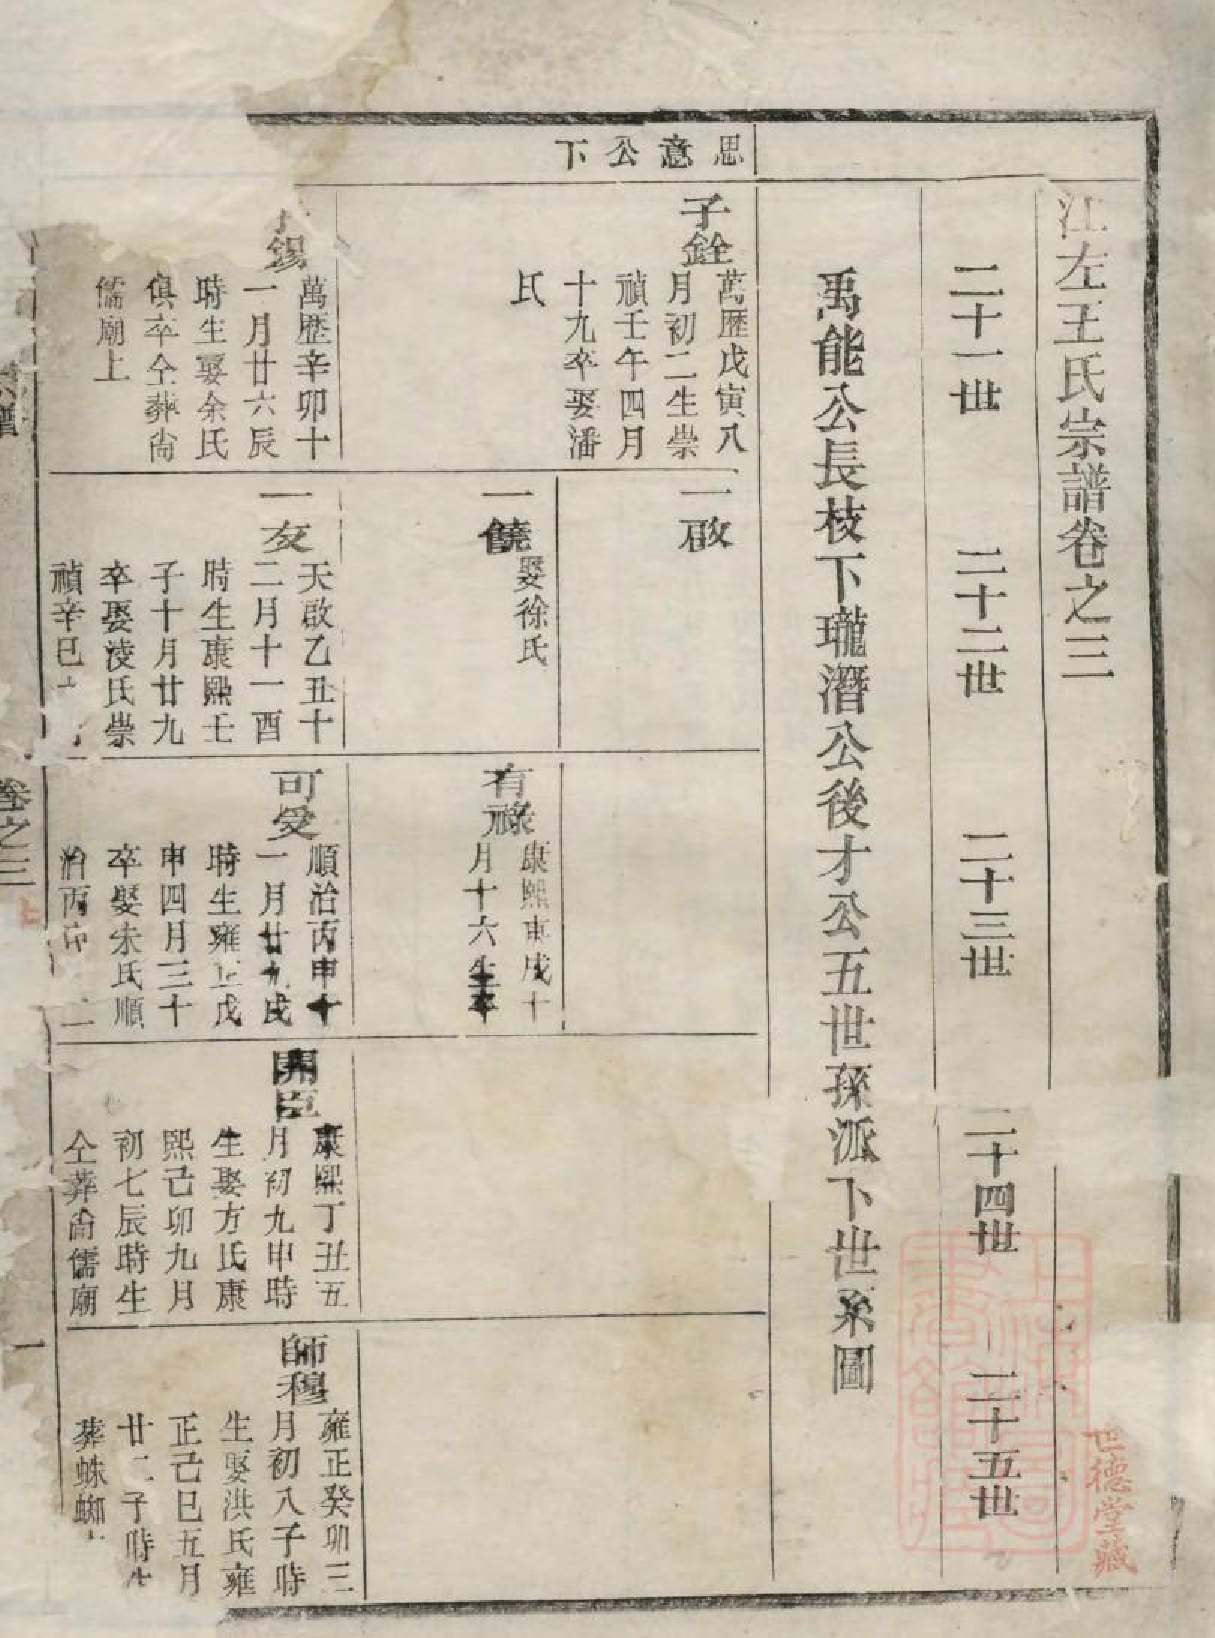 江左王氏宗譜卷之三
二十一世
二十二世
二十三世
二十四世
二十五世
禹能公長枝下瓏潛公後才公五世孫派下世系圖
思意公下
子銓
萬歷戊寅八
月初二生崇
禎壬午四月
十九卒娶潘
氏
一啟
一饒
娶徐氏
有祿
康熙 戌十
月十六生卒
錫
萬歷辛卯十
一月廿六辰
時生娶余氏
俱卒仝葬尙
儒廟上
一友
天啟乙丑十
二月十一酉
時生康熙壬
子十月廿九
卒娶淩氏崇
禎辛巳
可受
順治丙申十
一月廿九戌
時生雍正戊
申四月三十
卒娶朱氏順
治丙申 二
開臣
康熙丁丑五
月初九申時
生娶方氏康
熙己卯九月
初七辰時生
仝葬尙儒廟
師穆
雍正癸卯三
月初八子時
生娶洪氏雍
正己巳五月
廿二子時生
葬蛛蜘
譜
卷之三
七
一
世德堂藏